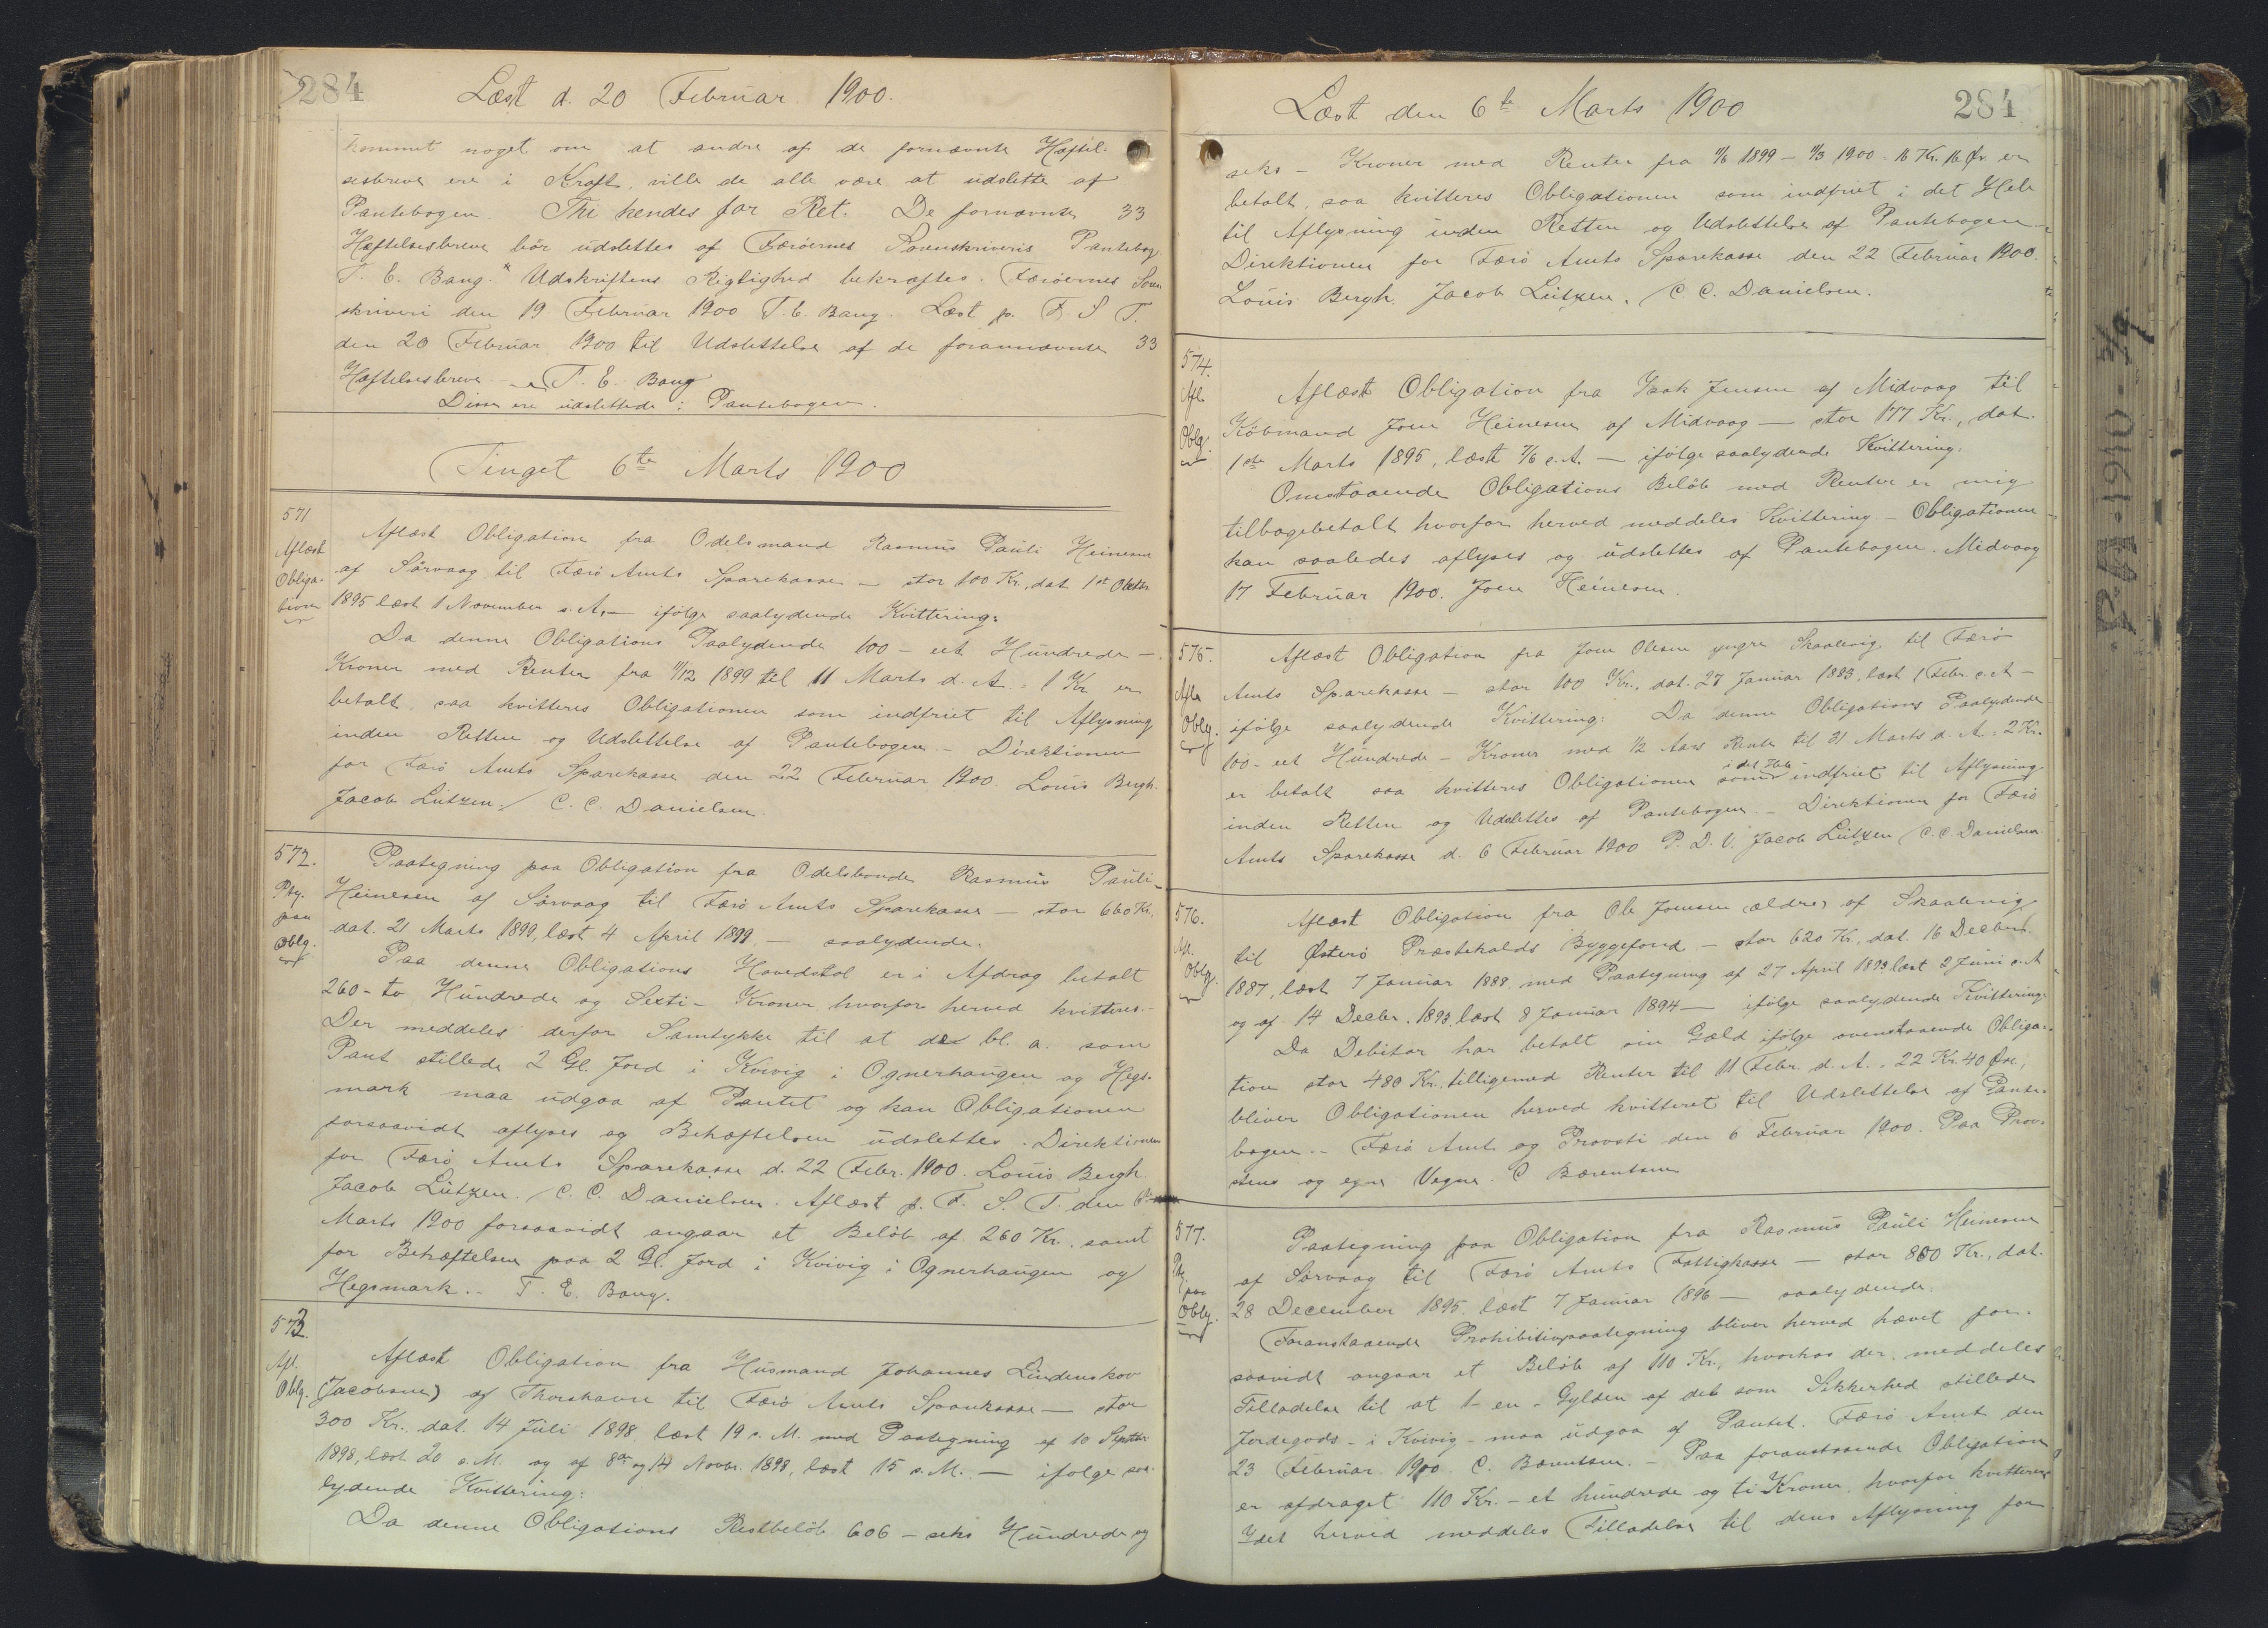 284
Læst d. 20 Februar 1900.
kommet noget om at andre af de fornævnte Hæftel-
sesbreve ere i Kraft, ville de alle være at udslette af
Pantebogen. Thi kendes for Ret. De fornævnte 33
Hæftelsesbreve bör udslettes af Færöernes Sorenskriveris Pantebog
T. E. Bang." Udskriftens Rigtighed bekræftes. Færöernes Soren
skriveri den 19 Februar 1900 T. E. Bang. Læst p. F. S T.
den 20 Februar 1900 til Udslettelse af de forannævnte 33
Hæftelsesbreve. T. E. Bang
Disse ere udslettede i Pantebogen.
Tinget 6te Marts 1900
571
Aflæst
Obliga-
tion
Aflæst Obligation fra Odelsmand Rasmus Pauli Heinesen
af Sörvaag til Færö Amts Sparekasse — stor 100 Kr., dat. 1st Oktbr.
1895 læst 1 November s. A. — ifölge saalydende Kvittering:
Da denne Obligations Paalydende 100 - eet Hundrede -
Kroner med Renter fra 11/12 1899 til 11 Marts d. A. = 1 Kr er
betalt, saa kvitteres Obligationen som indfriet til Aflysning
inden Retten og Udslettelse af Pantebogen. - Direktionen
for Færö Amts Sparekasse den 22 Februar 1900. Louis Bergh.
Jacob Lützen. / C. C. Danielsen.
572.
Ptg.
paa
Oblg.
Paategning paa Obligation fra Odelsbonde Rasmus Pauli
Heinesen af Sörvaag til Færö Amts Sparekasse — stor 660 Kr.
dat. 21 Marts 1899, læst 4 April 1899. — saalydende:
Paa denne Obligations Hovedstol er i Afdrag betalt
260 - to Hundrede og Sexti - Kroner, hvorfor herved kvitteres. -
Der meddeles derfor Samtykke til at der bl. a. som
Pant stillede 2 Gl. Jord i Kvivig i Ognerhaugen og Hegs-
mark maa udgaa af Pantet og kan Obligationen
forsaavidt aflyses og Behæftelsen udslettes. Direktionen
for Færö Amts Sparekasse d. 22 Febr. 1900. Louis Bergh
Jacob Lützen. / C. C. Danielsen. Aflæst p. F. S. T. den 6te
Marts 1900 forsaavidt angaar et Belöb af 260 Kr. samt
for Behæftelsen paa 2 Gl. Jord i Kvivig i Ognerhaugen og
Hegsmark. - T. E. Bang.
573.
Afl.
Oblg.
Aflæst Obligation fra Husmand Johannes Lindenskov
(Jacobsen) af Thorshavn til Færö Amts Sparekasse — stor
300 Kr. dat. 14 Juli 1898, læst 19 s. M. med Paategning af 10 Septbr.
1898, læst 20 s. M. og af 8de og 14 Novbr. 1898, læst 15 s. M. — ifölge saa-
lydende Kvittering:
Da denne Obligations Restbelöb 606 - seks Hundrede og
Læst den 6te Marts 1900
284
seks - Kroner med Renter fra 11/6 1899 - 11/3 1900 - 16 Kr. 16 Ør er
betalt, saa kvitteres Obligationen som indfriet i det Hele
til Aflysning inden Retten og Udslettelse af Pantebogen -
Direktionen for Færö Amts Sparekasse den 22 Februar 1900.
Louis Bergh. Jacob Lützen. / C. C. Danielsen.
574.
Afl.
Oblg.
Aflæst Obligation fra Isak Jensen af Midvaag til
Köbmand Joen Heinesen af Midvaag — stor 177 Kr., dat.
1ste Marts 1895, læst 7/6 s. A. — ifölge saalydende Kvittering:
Omstaaende Obligations Belöb med Renter er mig
tilbagebetalt hvorfor herved meddeles Kvittering - Obligationen
kan saaledes aflyses og udslettes af Pantebogen. Midvaag
17 Februar 1900. Joen Heinesen.
575.
Afl.
Oblg.
Aflæst Obligation fra Joen Olesen yngre Skaalevig til Færö
Amts Sparekasse — stor 100 Kr., dat. 27 Januar 1883, læst 1 Febr. s. A -
ifölge saalydende Kvittering: Da denne Obligations Paalydende
100 - eet Hundrede - Kroner med 1/2 Aars Rente til 31 Marts d. A. = 2 Kr.
er betalt saa kvitteres Obligationen som i det Hele indfriet til Aflysning
inden Retten og Udslettes af Pantebogen. - Direktionen for Færö
Amts Sparekasse d. 6 Februar 1900 P. D. V. Jacob Lützen / C. C. Danielsen
576.
Afl.
Oblg.
Aflæst Obligation fra Ole Joensen (ældre) af Skaalevig
til Østerö Præstekalds Byggefond — stor 620 Kr., dat. 16 Decbr.
1887, læst 7 Januar 1888, med Paategning af 27 April 1893 læst 2 Juni s. A
og af 14 Decbr. 1893, læst 8 Januar 1894 — ifölge saalydende Kvittering:
Da Debitor har betalt sin Gæld ifölge ovenstaaende Obliga-
tion stor 480 Kr. tilligemed Renter til 11 Febr. d. A. = 22 Kr. 40 Øre,
bliver Obligationen herved kvitteret til Udslettelse af Pante-
bogen. - Færö Amt og Provsti den 6 Februar 1900. Paa Prov-
stens og egne Vegne. C Bærentsen
577.
Ptg.
paa
Oblg.
Paategning paa Obligation fra Rasmus Pauli Heinesen
af Sörvaag til Færö Amts Fattigkasse — stor 800 Kr., dat.
28 December 1895, læst 7 Januar 1896 — saalydende:
Foranstaaende Prohibitivpaategning bliver herved hævet for-
saavidt angaar et Belöb af 110 Kr., hvorhos der meddeles
Tilladelse til at 1 - en - Gylden af det som Sikkerhed stillede
Jordegods - i Kvivig - maa udgaa af Pantet. Færö Amt den
23 Februar 1900. C. Bærentsen. - Paa foranstaaende Obligation
er afdraget 110 Kr. - et hundrede og ti Kroner, hvorfor kvitteres
Idet herved meddeles Tilladelse til dens Aflysning for